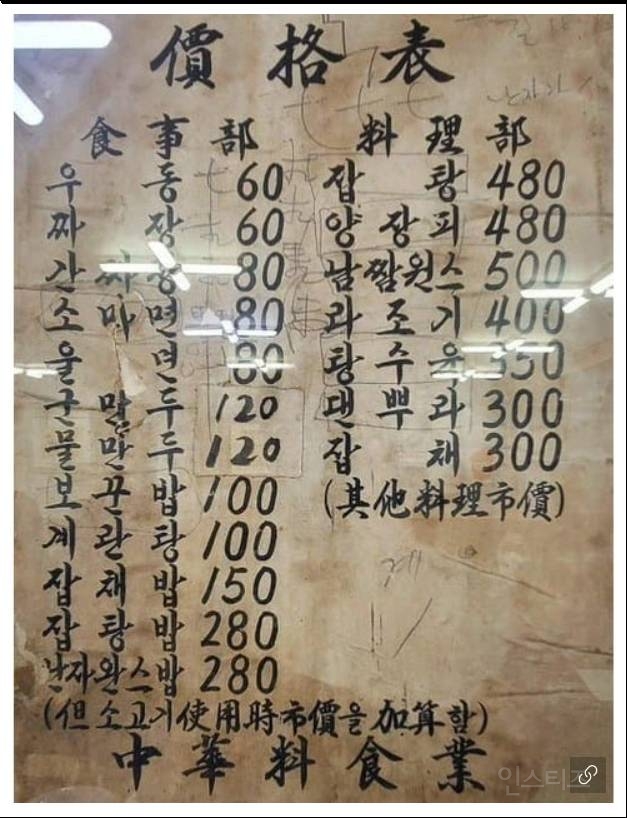 價格表
食事部
우동 60
짜장 60
간짜장 80
소마면 80
울면 80
군만두 120
물만두 120
보끈밥 100
계란탕 100
잡채밥 150
잡탕밥 280
난자완스밥 280
(但 소고기 使用時 市價을 加算함)
料理部
잡탕 480
양장피 480
남짬원스 500
과조기 400
탕수육 350
댄뿌라 300
잡채 300
(其他料理市價)
中華料食業
인스티즈